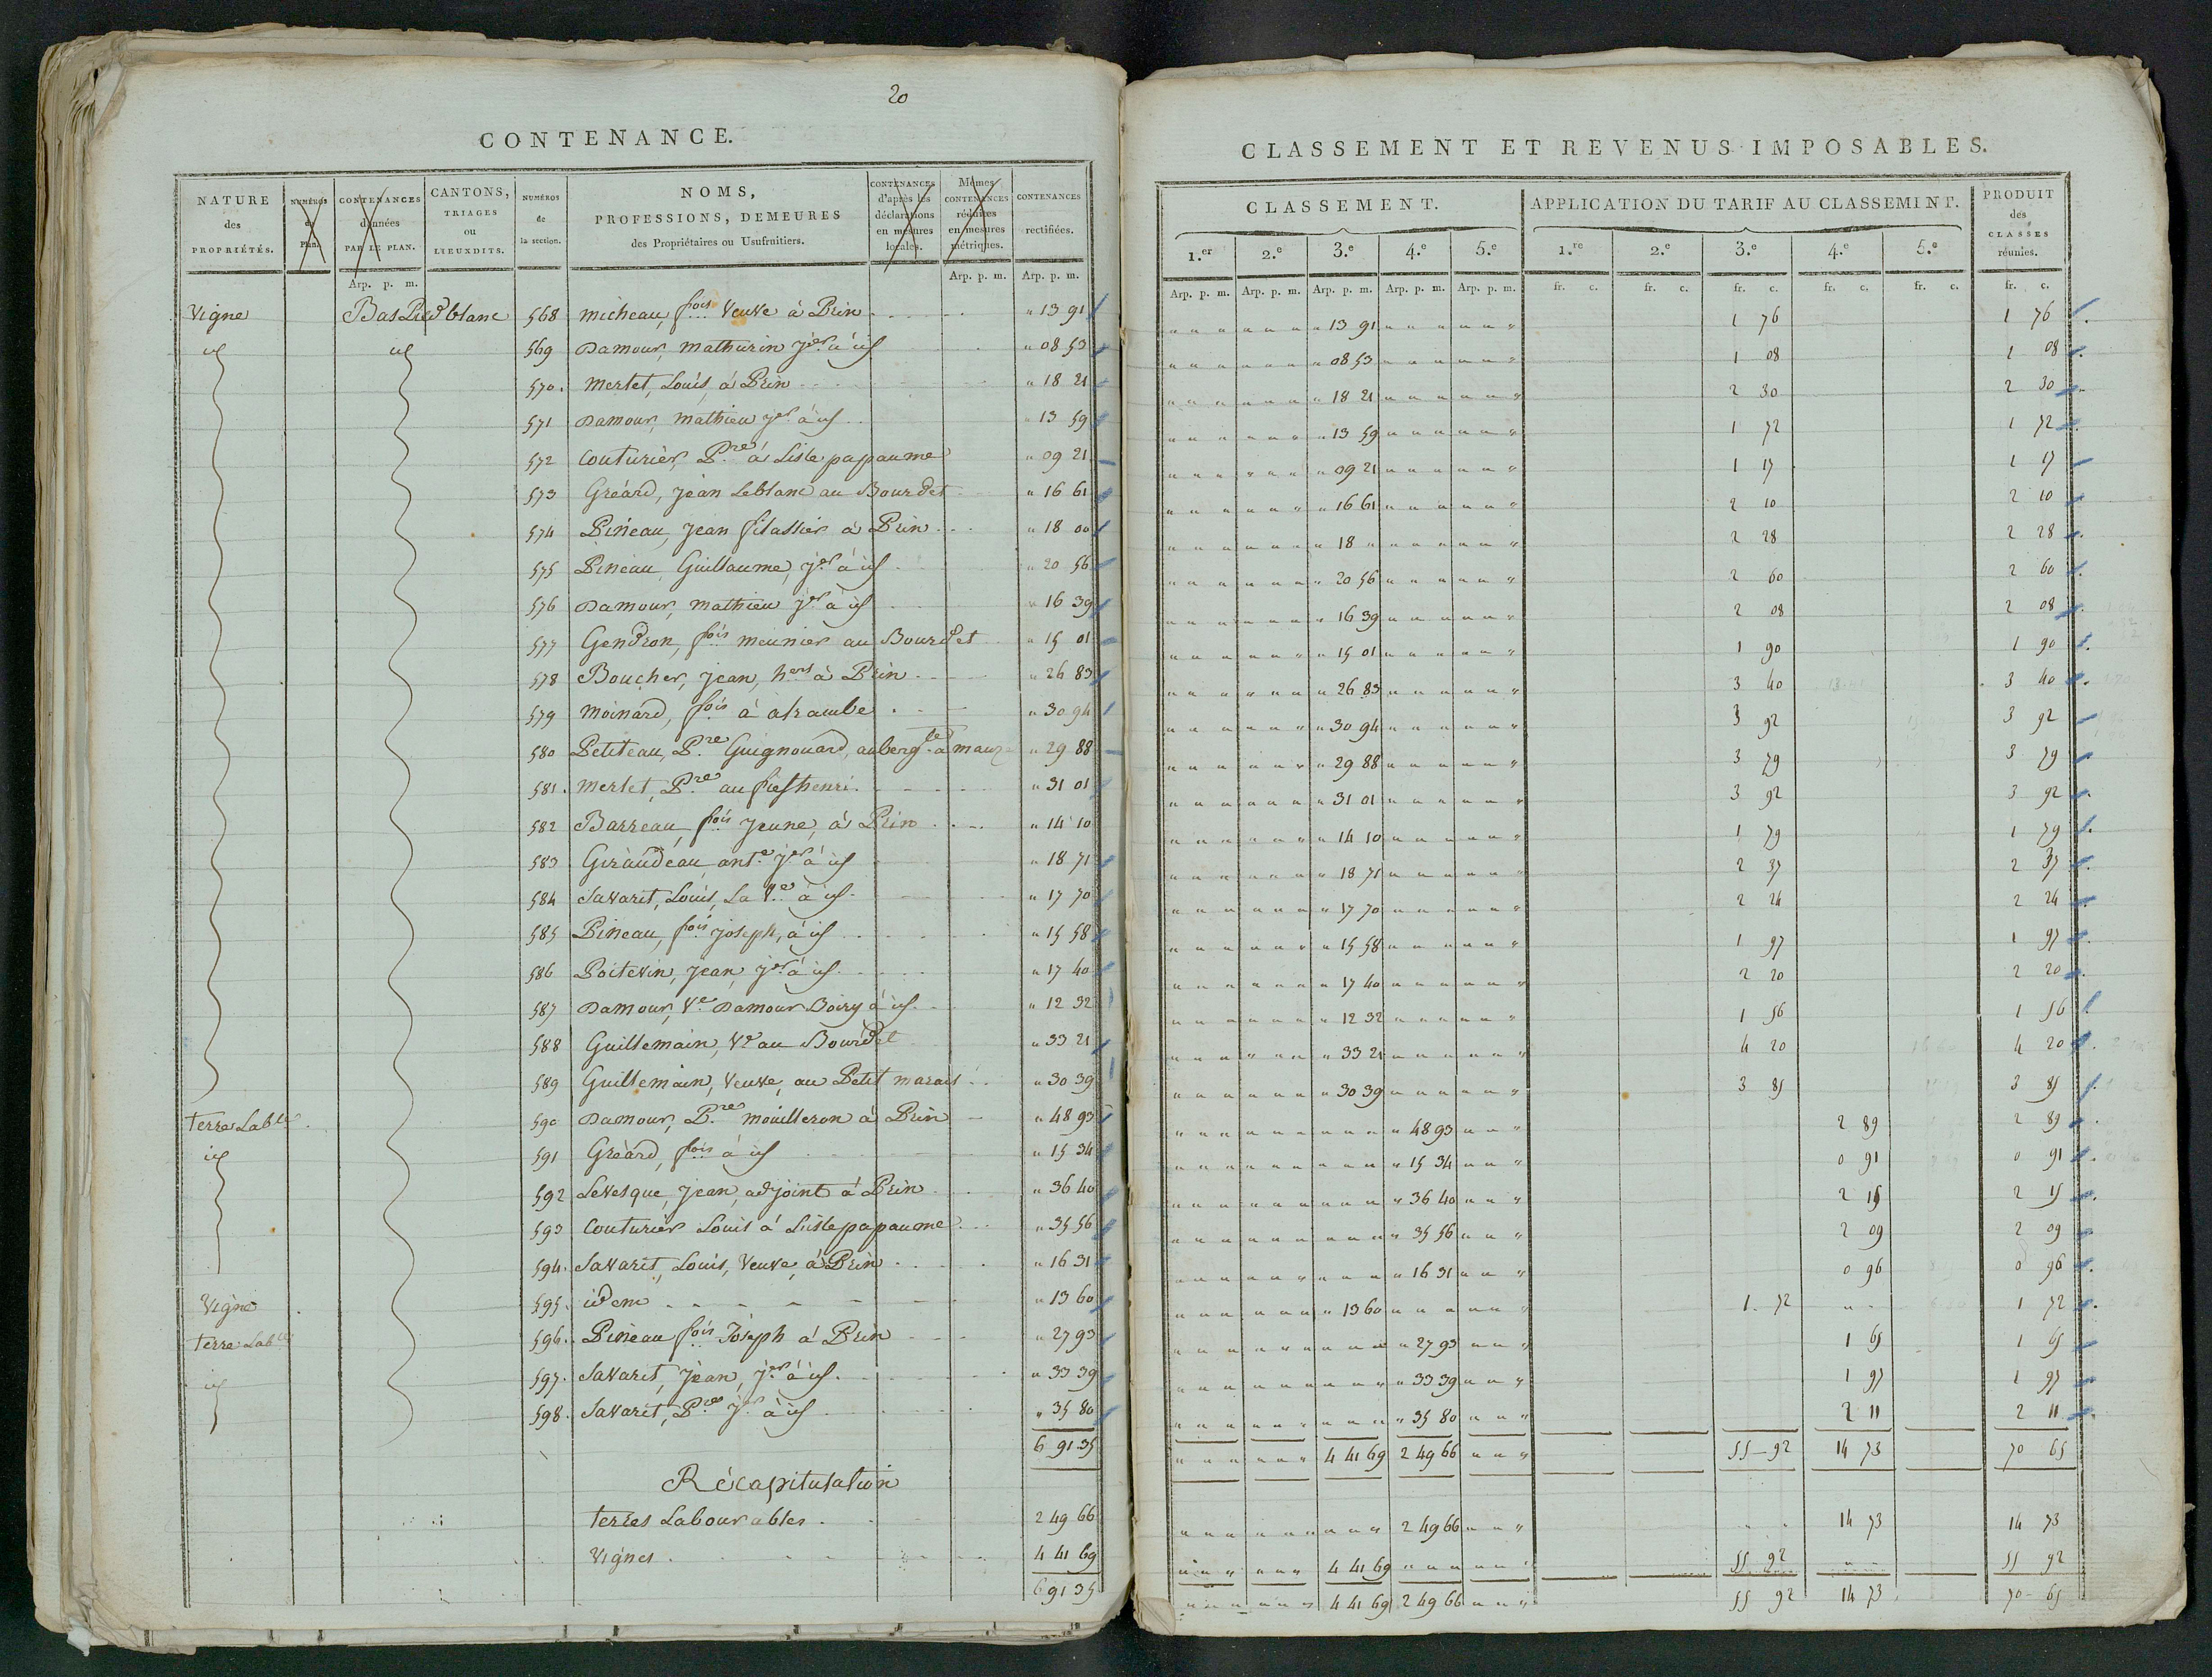 20
CONTENANCE.
NATURE des PROPRIÉTÉS. NUMÉROS du Plan. CONTENANCES données PAR LE PLAN. CANTONS, TRIAGES ou LIEUXDITS. NUMÉROS de la section. NOMS, PROFESSIONS, DEMEURES des Propriétaires ou Usufruitiers. CONTENANCES d'après les déclarations en mesures locales. Mêmes CONTENANCES réduites en mesures métriques. CONTENANCES rectifiées.
Arp. p. m. Arp. p. m. Arp. p. m.
Vigne Bas Pied blanc 568 micheau, fois Veuve à Prin " 13 91
id id 569 Damour, mathurin jer à id " 08 53
570. merlet, Louis, à Prin " 18 21
571 Damour, mathieu jer à id " 13 59
572 Couturier, Pre à Lisle papaume " 09 21
573 Gréard, jean Leblanc au Bourdet " 16 61
574 Pineau, jean filassier à Prin " 18 00
575 Pineau, Guillaume, jer à id " 20 56
576 Damour, mathieu jer à id " 16 39
577 Gendron, fois meunier au Bourdet " 15 01
578 Boucher, jean, hers à Prin " 26 83
579 moinard, fois à atraube " 30 94
580 Petiteau, Pre Guignouard, auberg.te à mauz " 29 88
581. merlet, Pre au fief henri " 31 01
582 Barreau, fois jeune, à Prin " 14 10
583 Giraudeau, ant.e jer à id " 18 71
584 Savarit, Louis, La Ve à id " 17 70
585 Pineau, fois joseph, à id " 15 58
586 Poitevin, jean, jer à id " 17 40
587 Damour, Ve Damour Boiry à id " 12 32
588 Guillemain, Ve au Bourdet " 33 21
589 Guillemain, Veuve, au Petit marais " 30 39
terre Lable 590 Damour, Pre mouilleron à Prin " 48 93
id 591 Gréard, fois à id " 15 34
592 Levesque, jean, adjoint à Prin " 36 40
593 Couturier Louis à Lislepapaume " 35 56
594. Savarit, Louis, Veuve, à Prin " 16 31
Vigne 595. idem " 13 60
terre Lable 596. Pineau fois Joseph à Prin " 27 93
id 597. Savarit, jean, jer à id " 33 39
598. Savarit, Pre jer à id " 35 80
6 91 35
Récapitulation
terres Labourables 2 49 66
Vignes 4 41 69
6 91 35
CLASSEMENT ET REVENUS IMPOSABLES.
CLASSEMENT. APPLICATION DU TARIF AU CLASSEMENT. PRODUIT des CLASSES réunies.
1.er 2.e 3.e 4.e 5.e 1.re 2.e 3.e 4.e 5.e
Arp. p. m. Arp. p. m. Arp. p. m. Arp. p. m. Arp. p. m. fr. c. fr. c. fr. c. fr. c. fr. c. fr. c.
" 13 91 1 76 1 76
" 08 53 1 08 1 08
" 18 21 2 30 2 30
" 13 59 1 72 1 72
" 09 21 1 17 1 17
" 16 61 2 10 2 10
" 18 " 2 28 2 28
" 20 56 2 60 2 60
" 16 39 2 08 2 08
" 15 01 1 90 1 90
" 26 83 3 40 3 40
" 30 94 3 92 3 92
" 29 88 3 79 3 79
" 31 01 3 92 3 92
" 14 10 1 79 1 79
" 18 71 2 37 2 37
" 17 70 2 24 2 24
" 15 58 1 97 1 97
" 17 40 2 20 2 20
" 12 32 1 56 1 56
" 33 21 4 20 4 20
" 30 39 3 85 3 85
" 48 93 2 89 2 89
" 15 34 0 91 0 91
" 36 40 2 15 2 15
" 35 56 2 09 2 09
" 16 31 0 96 0 96
" 13 60 1. 72 1 72
" 27 93 1 65 1 65
" 33 39 1 97 1 97
" 35 80 2 11 2 11
4 41 69 2 49 66 55 92 14 73 70 65
2 49 66 14 73 14 73
4 41 69 55 92 55 92
4 41 69 2 49 66 55 92 14 73 70 65